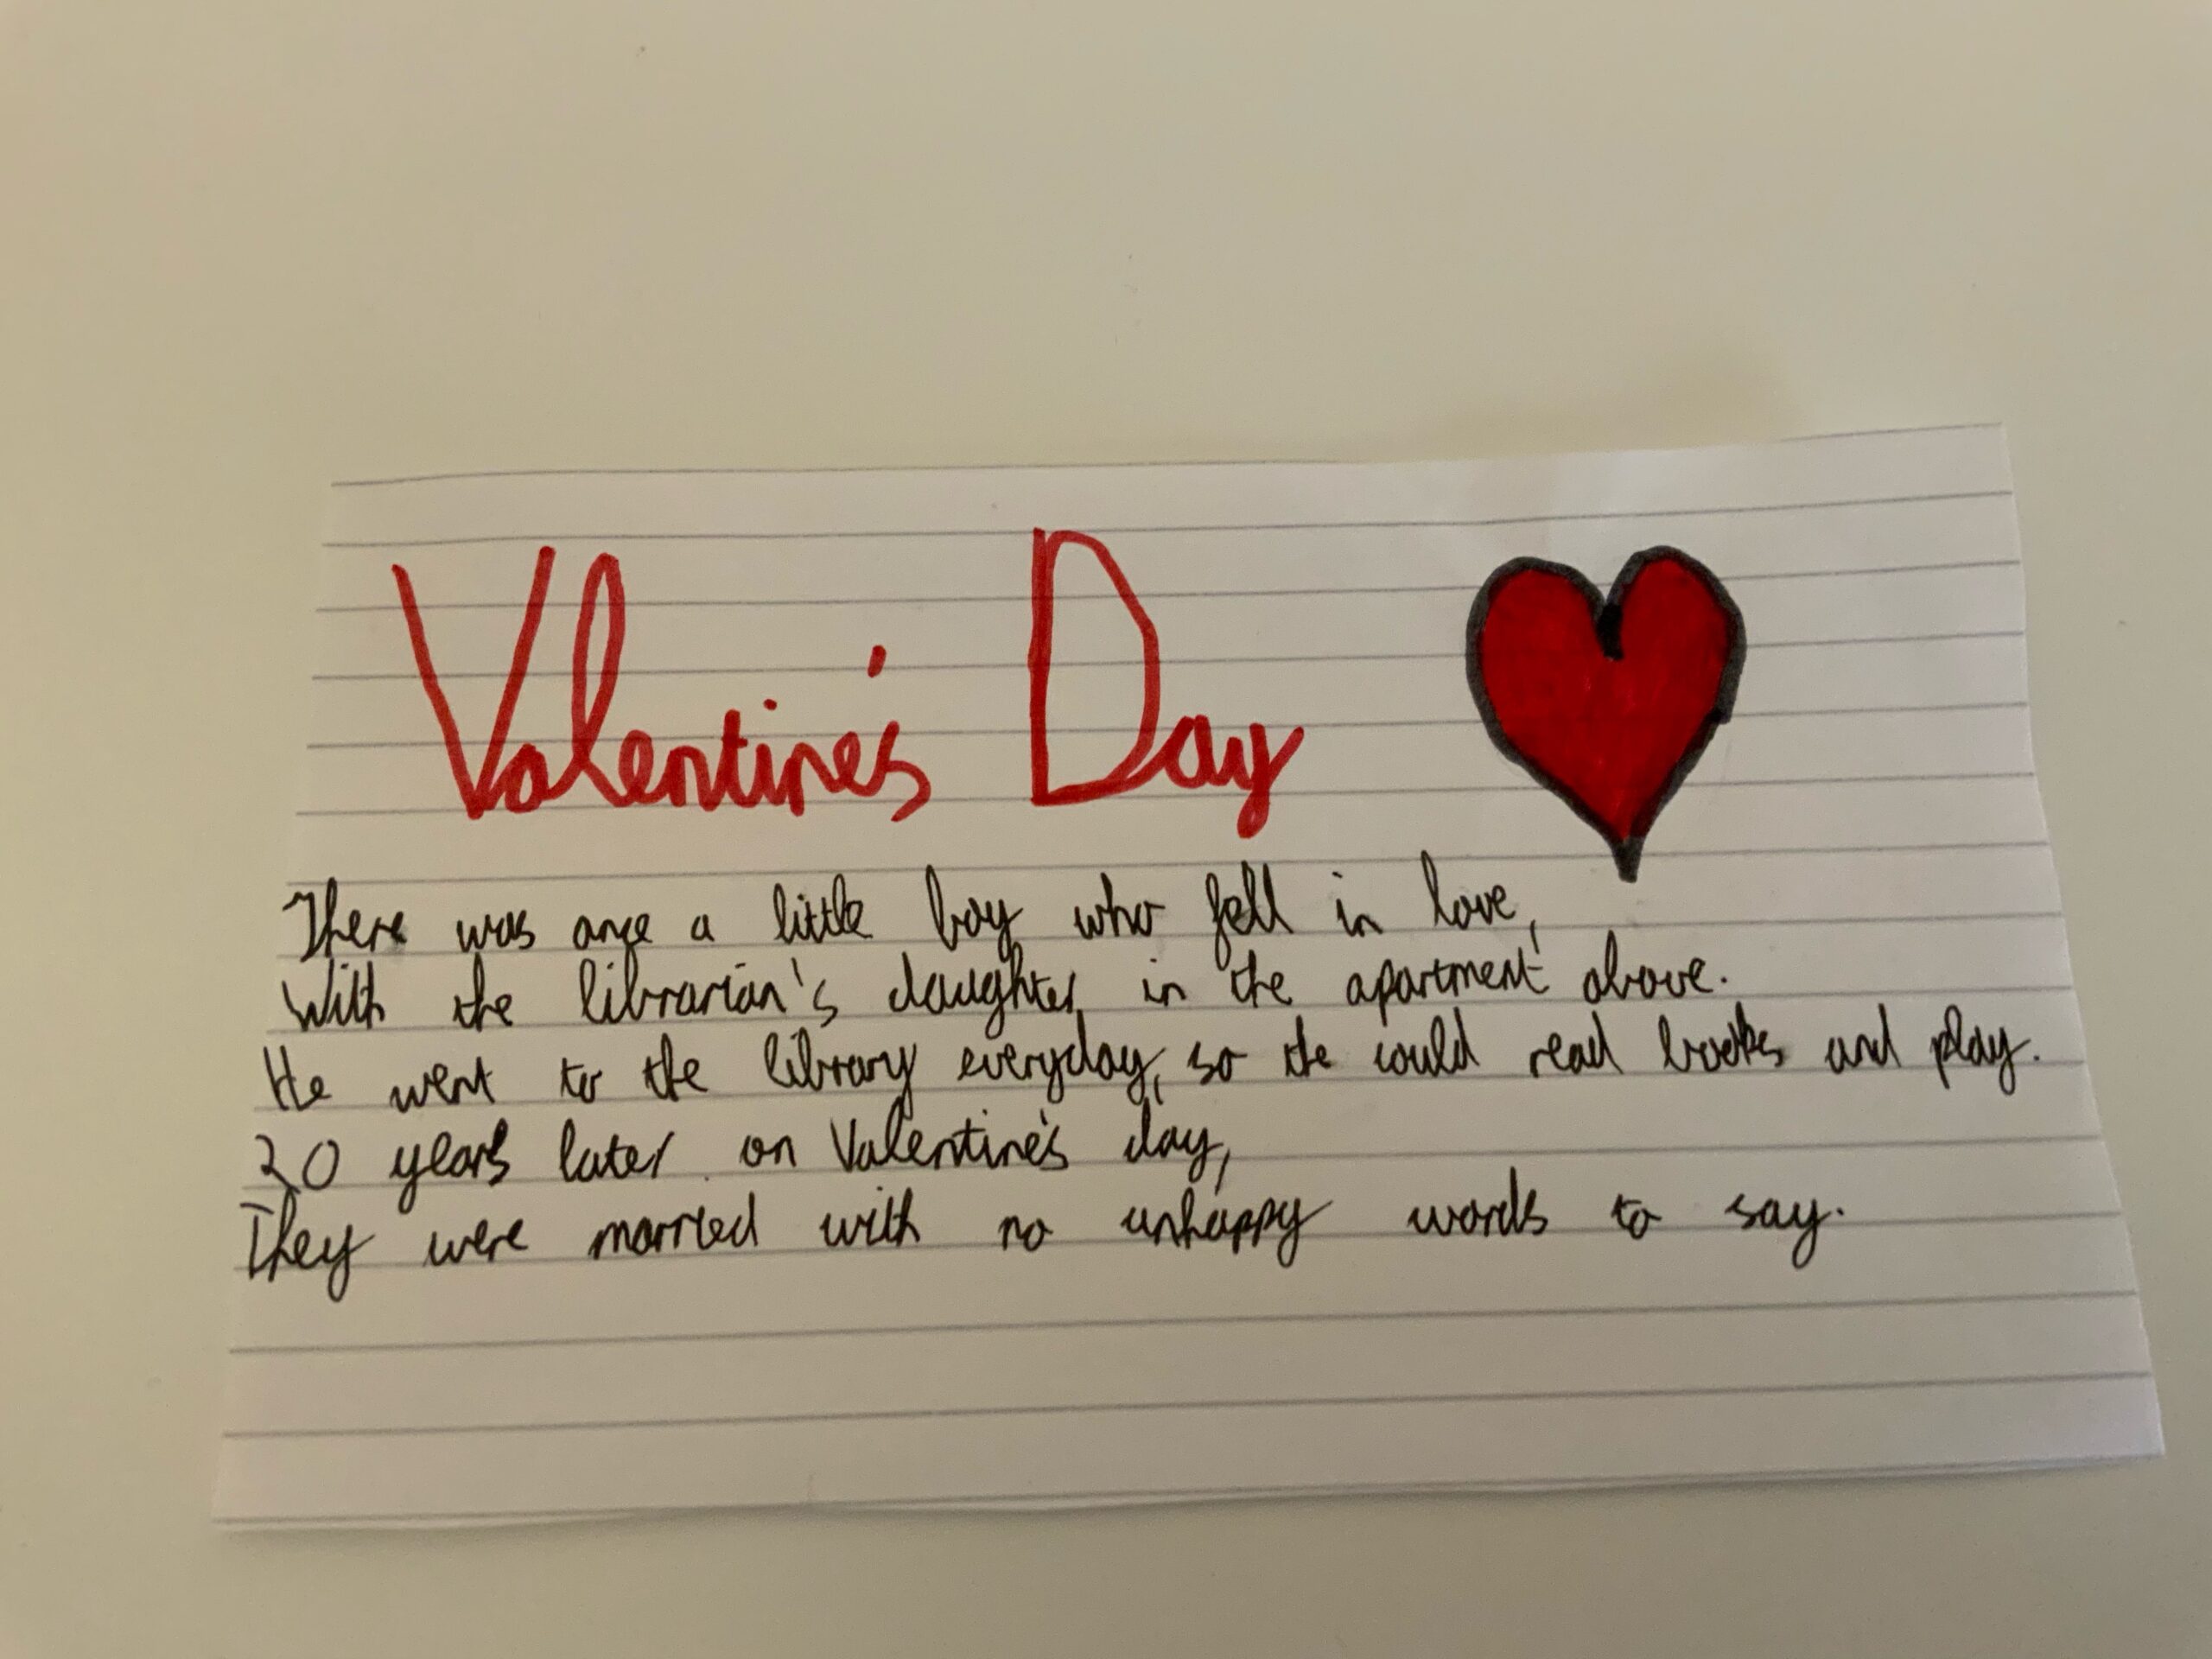 Valentine's Day
There was once a little boy who fell in love,
With the librarian's daughter in the apartment above.
He went to the library everyday, so he could read books and play.
20 years later on Valentine's day,
They were married with no unhappy words to say.